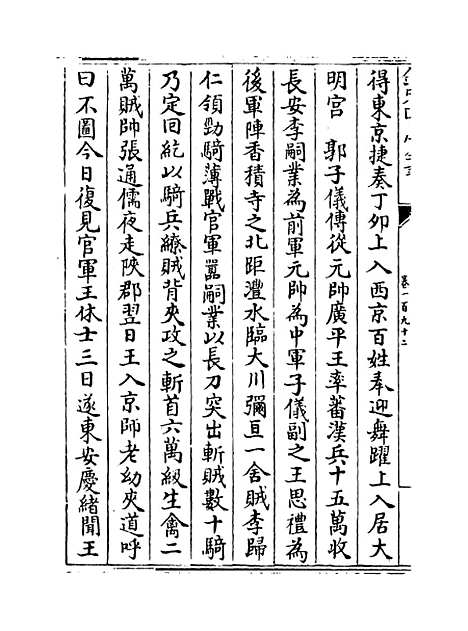 卷一百九十二
得東京捷奏丁夘上入西京百姓奉迎舞躍上入居大
明宮　郭子儀傳從元帥廣平王率蕃漢兵十五萬收
長安李嗣業為前軍元帥為中軍子儀副之王思禮為
後軍陣香積寺之北距灃水臨大川彌亘一舍賊李歸
仁領勁騎薄戰官軍囂嗣業以長刀突出斬賊數十騎
乃定回紇以騎兵繚賊背夾攻之斬首六萬級生禽二
萬賊帥張通儒夜走陝郡翌日王入京師老幼夾道呼
曰不圖今日復見官軍王休士三日遂東安慶緒聞王